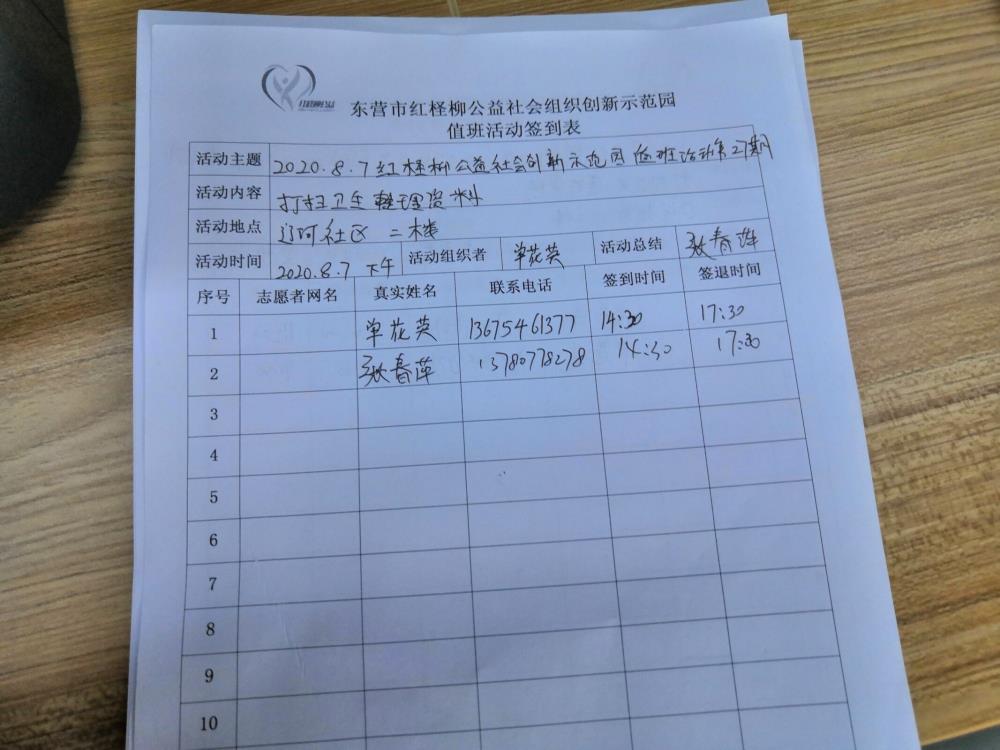 东营市红柽柳公益社会组织创新示范园
值班活动签到表
活动主题 2020.8.7红柽柳公益社会创新示范园值班活动第27期
活动内容 打扫卫生整理资料
活动地点 辽河社区 二楼
活动时间 2020.8.7 下午 活动组织者 单花英 活动总结 张春萍
序号 志愿者网名 真实姓名 联系电话 签到时间 签退时间
1 单花英 13675461377 14:30 17:30
2 张春萍 13780778278 14:30 17:30
3
4
5
6
7
8
9
10